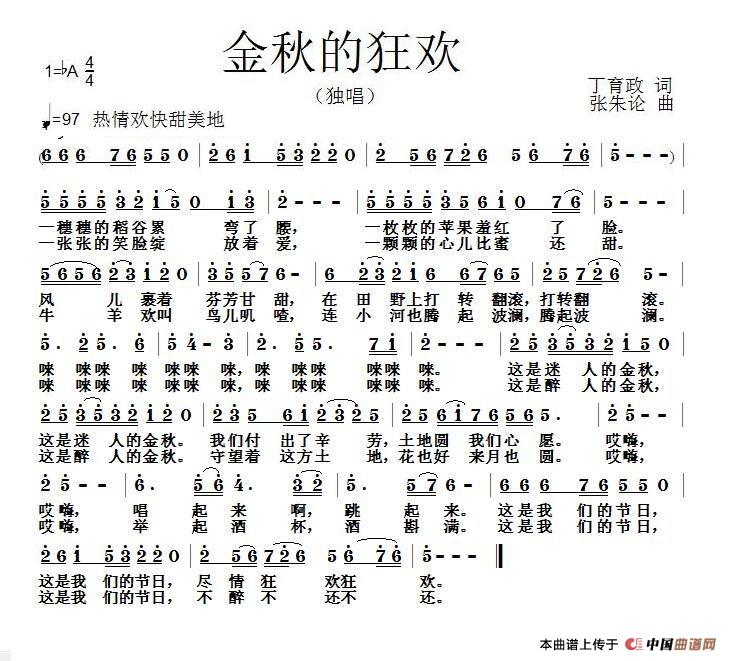 金秋的狂欢
1=♭A 4/4
（独唱）
丁育政 词
张朱论 曲
♩=97 热情欢快甜美地
(666 76550 | 261 53220 | 2 56726 56 76 | 5---)
5555 32150 13 | 2--- | 5555 35610 76 | 5---
一穗穗的稻谷累 弯了腰， 一枚枚的苹果羞红 了 脸。
一张张的笑脸绽 放着爱， 一颗颗的心儿比蜜 还 甜。
5656 2310 | 35576- | 623216 6765 | 25726 5-
风 儿裹着 芬芳甘甜，在田 野上打 转翻滚，打转翻 滚。
牛 羊欢叫 鸟儿叽喳，连小 河也腾 起波澜，腾起波 澜。
5. 2. 55. 12 | 54-3 | 2. 5. 55. 71 | 2--- | 253532150
唻 唻 唻唻 唻唻 唻唻 唻，唻 唻 唻唻 唻唻 唻。 这是迷 人的金秋，
唻 唻 唻唻 唻唻 唻唻 唻，唻 唻 唻唻 唻唻 唻。 这是醉 人的金秋，
25353210 | 235 61 2325 | 256176565. | 25-
这是迷 人的金秋。我们付 出了辛 劳，土地圆 我们心 愿。哎嗨，
这是醉 人的金秋。守望着 这方土 地，花也好 来月也 圆。哎嗨，
25- | 6. 564. 32 | 3. 576- | 666 76550
哎嗨， 唱 起来 啊，跳 起来。这是我 们的节日，
哎嗨， 举 起酒 杯，酒 斟满。这是我 们的节日，
261 53220 | 2 56726 56 76 | 5---
这是我 们的节日，尽 情狂 欢狂 欢。
这是我 们的节日，不 醉不 还不 还。
本曲谱上传于 中国曲谱网
www.qupu123.com